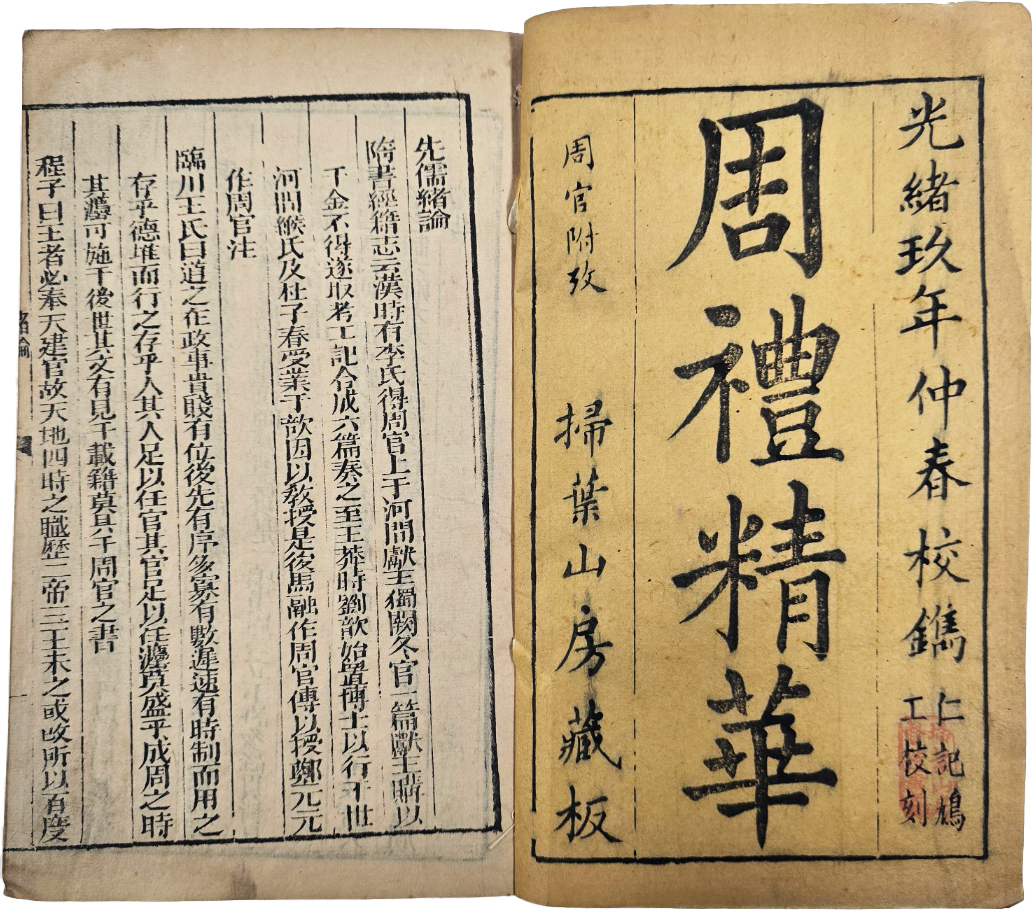 光緒玖年仲春校鐫
仁記鳩
工校刻
周禮精華
周官附攷
掃葉山房藏板
先儒緒論
隋書經籍志云漢時有李氏得周官上于河間獻王獨闕冬官一篇獻王購以
千金不得遂取考工記合成六篇奏之至王莽時劉歆始置博士以行于世
河間緱氏及杜子春受業于歆因以教授是後馬融作周官傳以授鄭元元
作周官注
臨川王氏曰道之在政事貴賤有位後先有序多寡有數遲速有時制而用之
存乎德堆而行之存乎人其人足以任官其官足以任灋莫盛乎成周之時
其灋可施于後世其文有見于載籍莫具于周官之書
程子曰王者必奉天建官故天地四時之職歷二帝三王未之或改所以百度